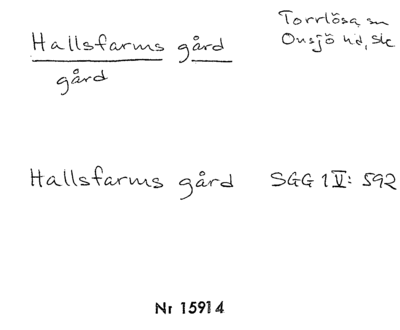 Hallsfarms gård
gård
Torrlösa sn
Onsjö hd, Sk
Hallsfarms gård SGG 1 IV: 592
Nr 15914